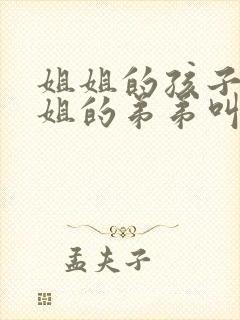 姐姐的孩子
姐的弟弟叫
孟夫子